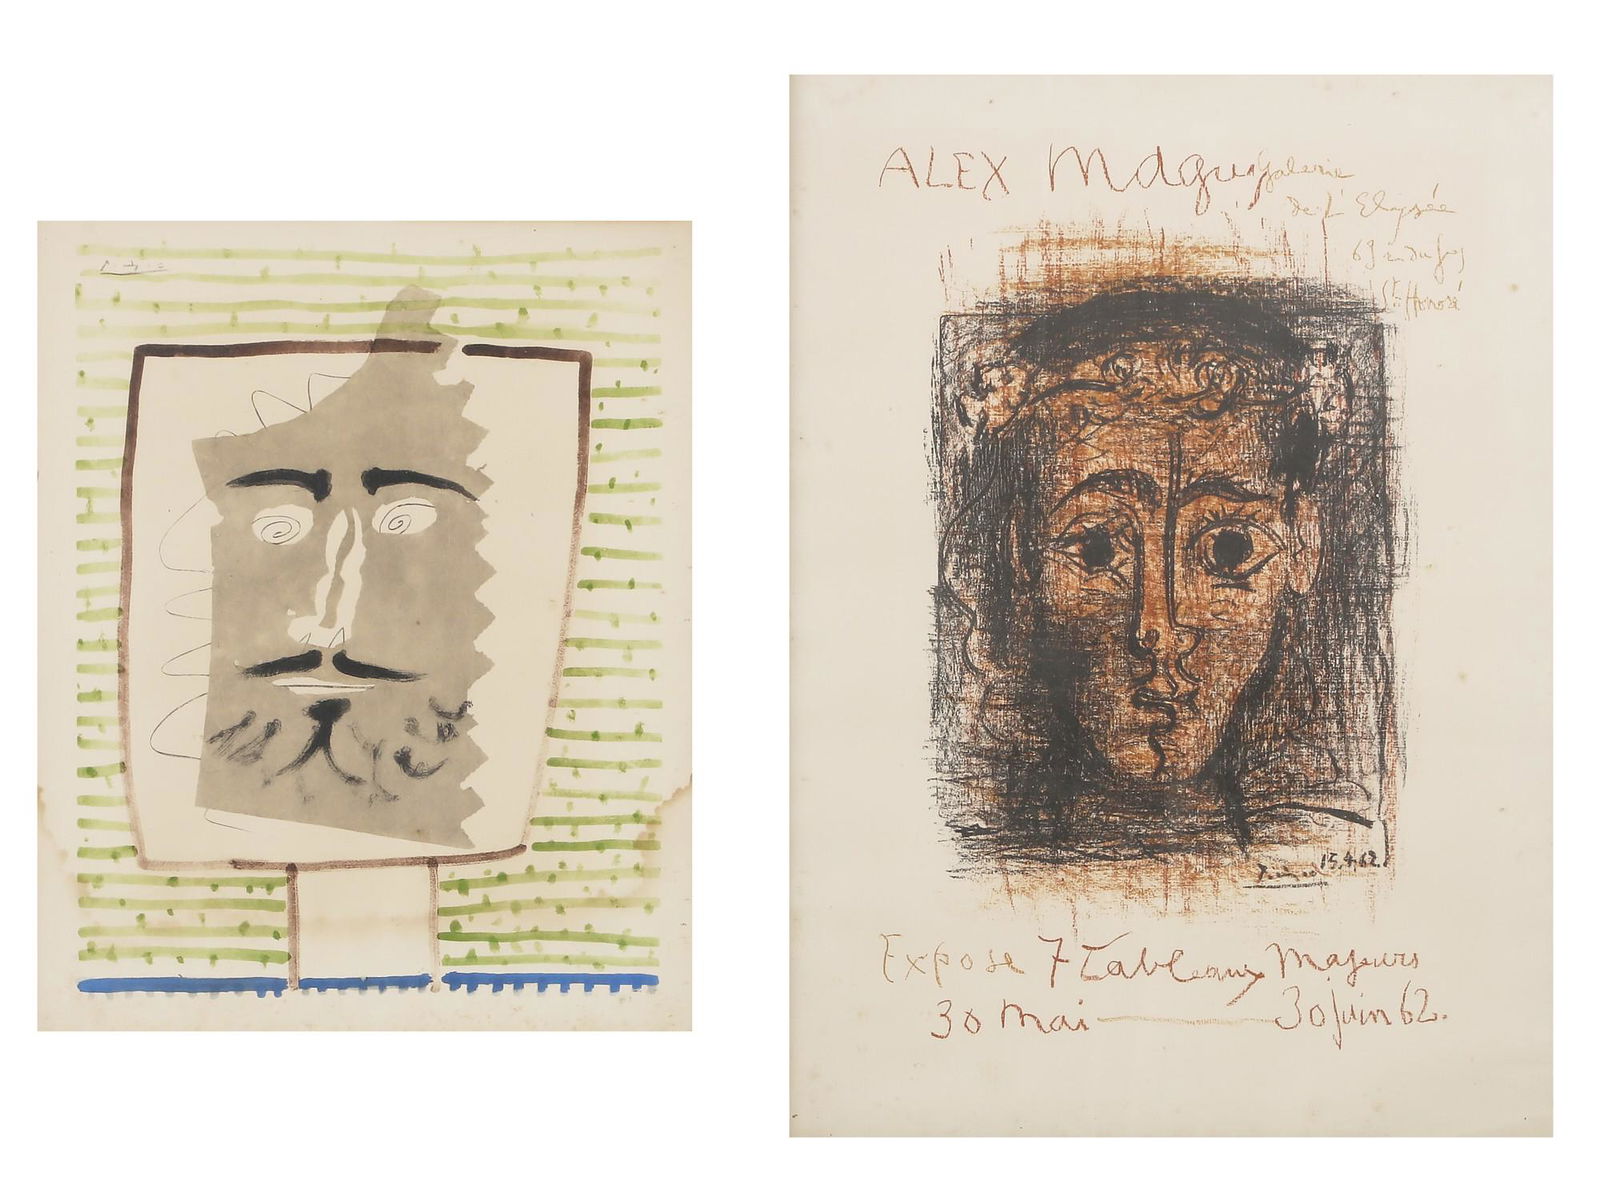 Picasso
ALEX Maguy Galerie
de L'Elysée
69 rue du fbg
St Honoré
Picasso 15.4.62.
Expose 7 tableaux Majeurs
30 Mai — 30 Juin 62.